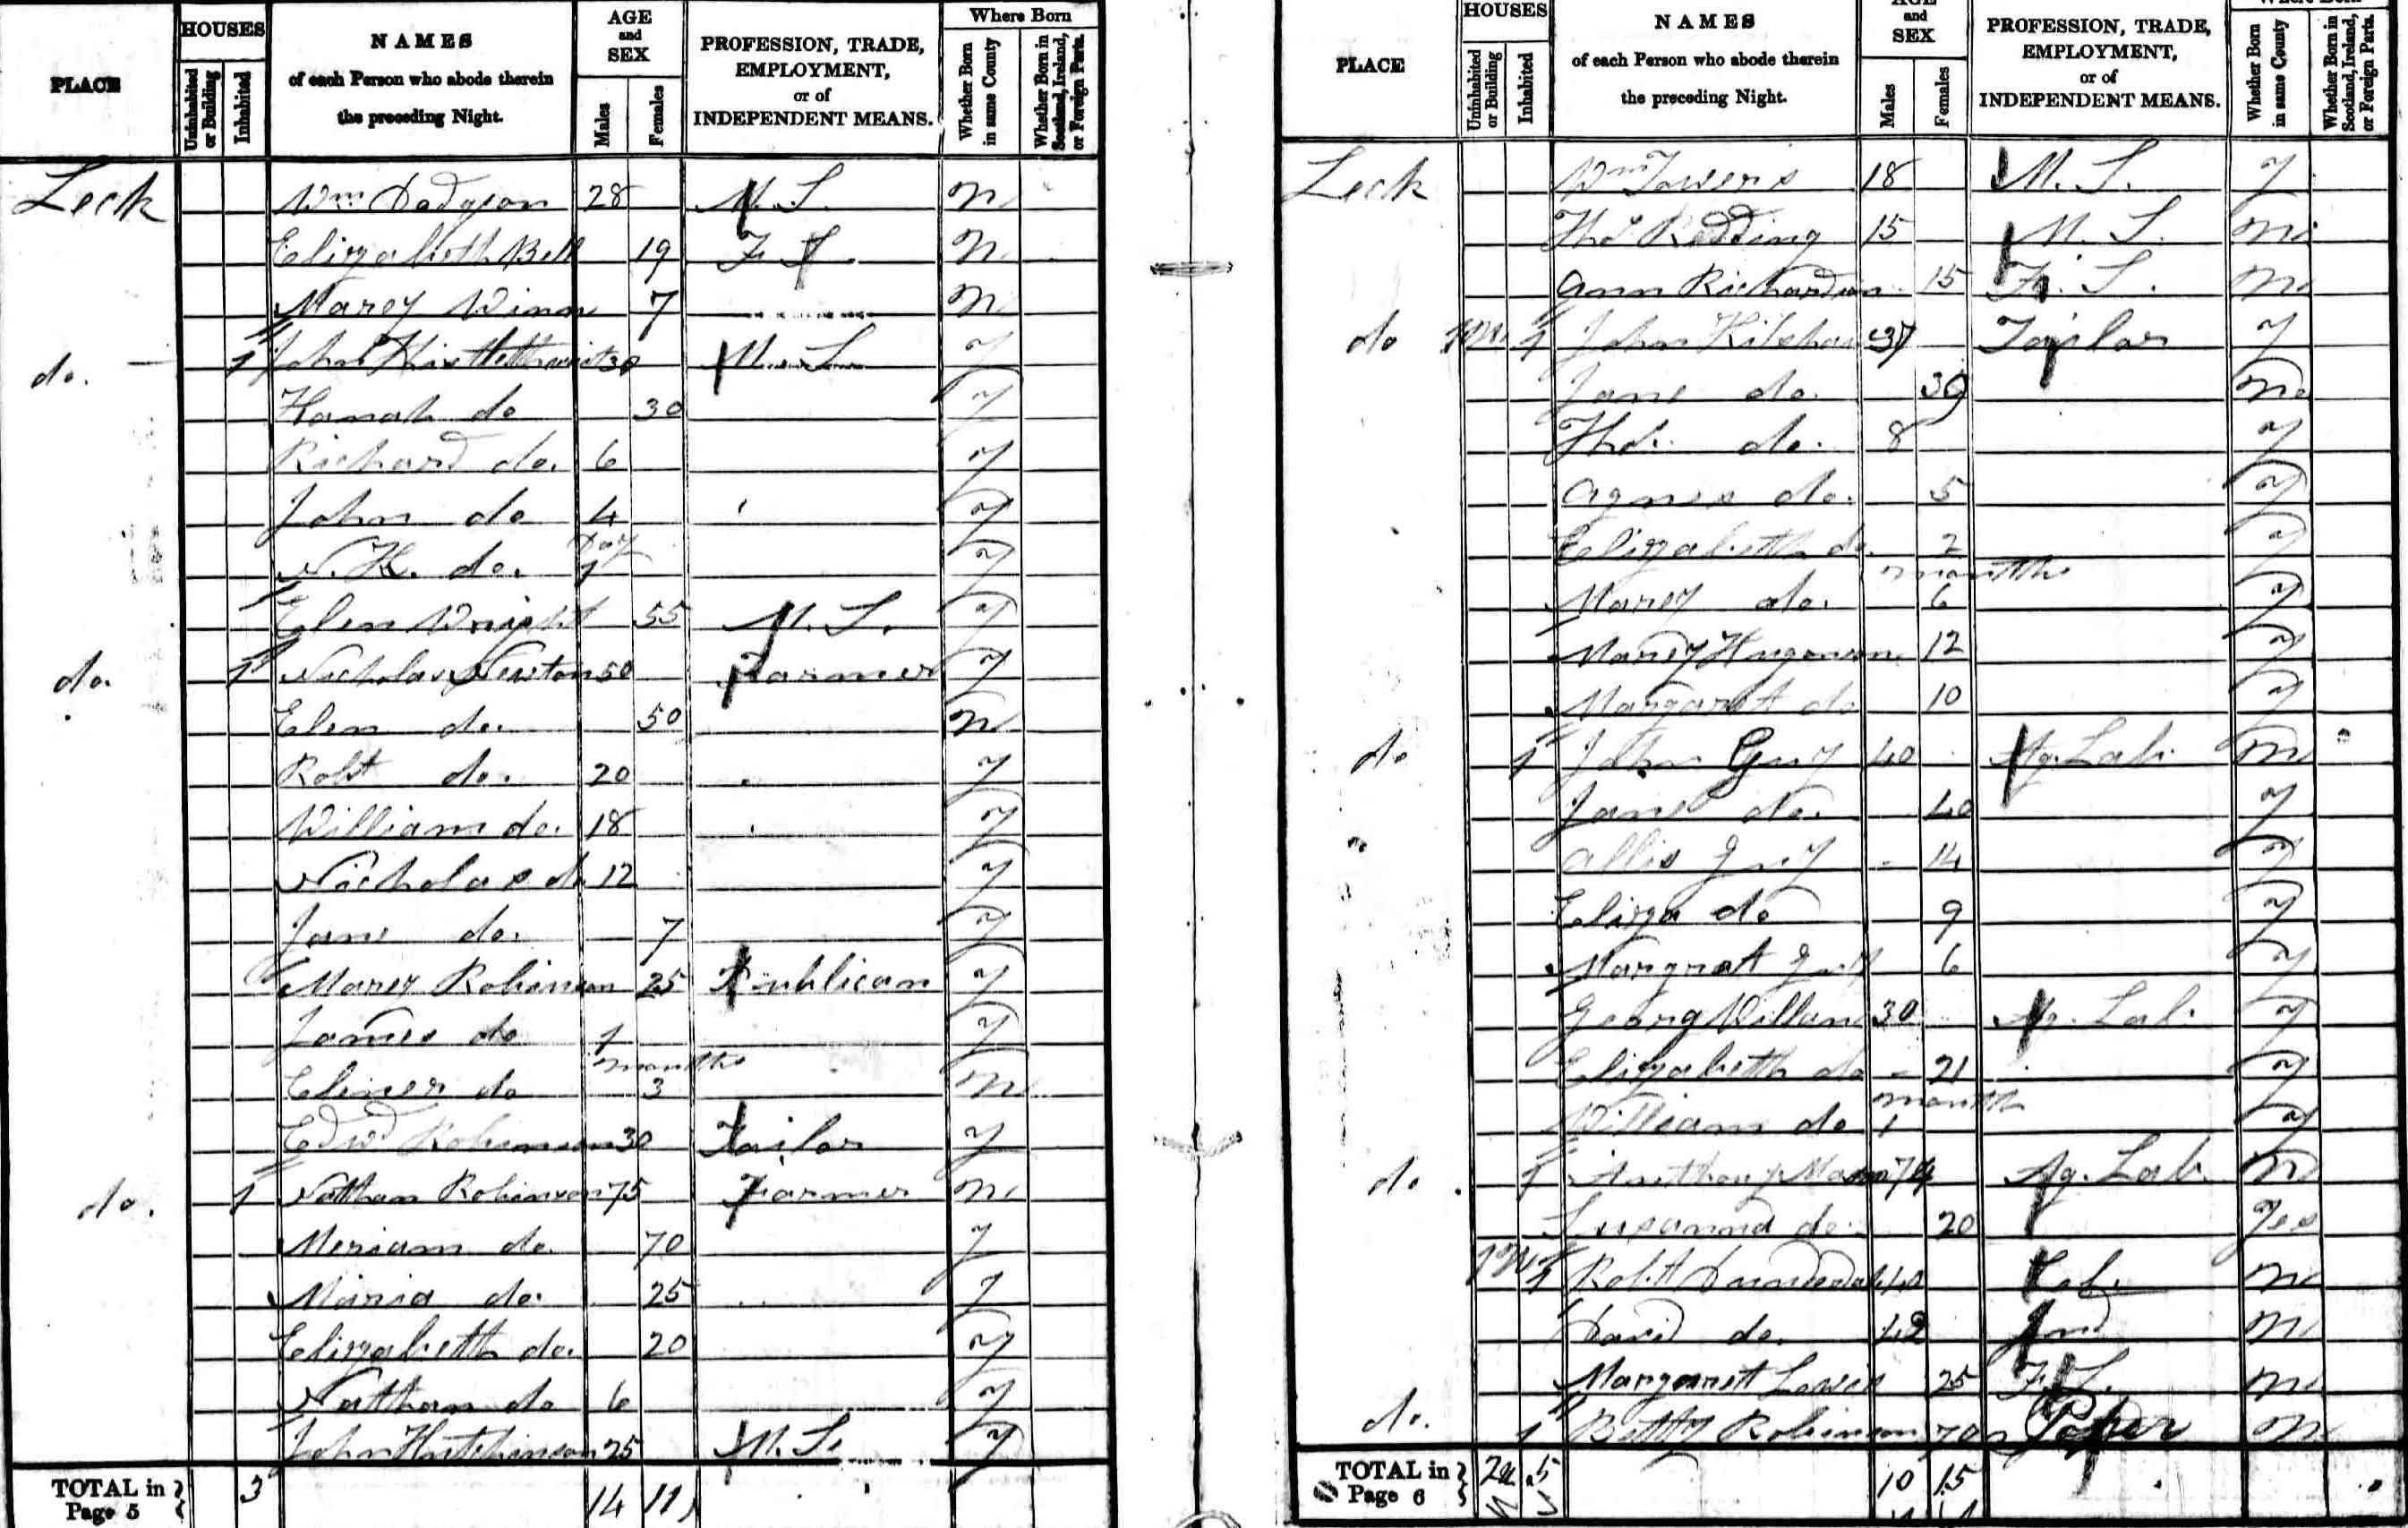 PLACE
HOUSES
Uninhabited or Building
Inhabited
NAMES
of each Person who abode therein
the preceding Night.
AGE
and
SEX
Males
Females
PROFESSION, TRADE,
EMPLOYMENT,
or of
INDEPENDENT MEANS.
Where Born
Whether Born in same County
Whether Born in Scotland, Ireland, or Foreign Parts.
Leck Wm Dodgson 28 M. S. N
Elizabeth Bell 19 F. S. N
Marey Winn 7 N
do. 1 John 30 M. S. y
Hanah do 30 y
Richard do. 6 y
John do 4 y
N. K. do. Day 1 y
Elen Wright 55 M. S. y
do. 1 Nicholas Newton 50 Farmer y
Elen do. 50 N
Robt do. 20 y
William do. 18 y
Nicholas do 12 y
Jane do. 7 y
Marey Robinson 25 Publican y
James do 1 y
Eliner do months 3 N
Edwd Robinson 30 Tailor y
do. 1 Natthan Robinson 75 Farmer N
Meriam do. 70 y
Maria do. 25 y
Elizabeth do. 20 y
Natthan do 6 y
John Hutchinson 25 M. S. y
TOTAL in Page 5 3 14 11
PLACE
HOUSES
Uninhabited or Building
Inhabited
NAMES
of each Person who abode therein
the preceding Night.
AGE
and
SEX
Males
Females
PROFESSION, TRADE,
EMPLOYMENT,
or of
INDEPENDENT MEANS.
Where Born
Whether Born in same County
Whether Born in Scotland, Ireland, or Foreign Parts.
Leck Wm Towers 18 M. S. y
Thos Redding 15 M. S. N
Ann Richardson 15 F. S. N
do 1 John 37 Tailor y
Jane do. 39 No
Thos. do. 8 y
Agnes do. 5 y
Elizabeth do. 2 y
Marey do. months 6 y
Marey 12 y
Margaret do 10 y
do 1 John Guy 40 Ag. Lab. N
Jane do. 40 y
Allis Guy 14 y
Eliza do 9 y
Margret Guy 6 y
Georg Willan 30 Ag. Lab. y
Elizabeth do 21 y
William do month 1 y
do. 1 Anthony Mason 74 Ag. Lab. N
Susanna do. 20 yes
1 Robt Lab. N
David do. Ind N
Margaret Lewis 25 F. S. N
do. 1 Betty Robinson 70 N
TOTAL in Page 6 5 10 15